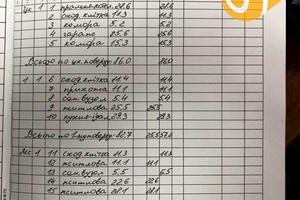 1 1 28.6 28.6
2 Сход.клітка 11.3 11.3
3 комора 5.2 5.2
4 гараж 25.6 25.6
5 комора 15.3 15.3
Всього по 86.0 86.0
1 1 6 сход.клітка 11.4 11.4
7 прихожа 11.1 11.1
8 сан.вузол 5.4 5.4
9 житлова 25.5 25.5
10 кухня 29.3 29.3
Всього по 1 82.7
Мс 1 11 Сход.клітка 11.3 11.3
12 житлова 11.1 11.1
13 сан.вузол 5.5 5.5
14 житлова 22.6 22.6
15 житлова 28.1 28.1